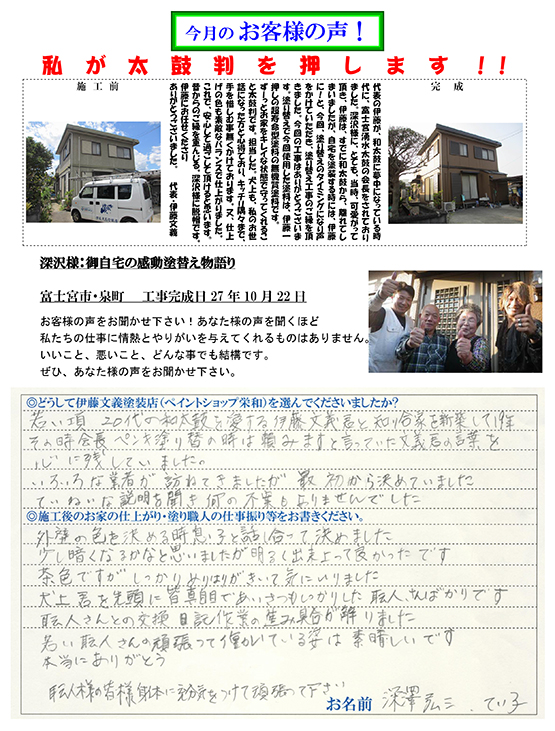 今月のお客様の声！
私が太鼓判を押します!!
施工前
完成
代表の伊藤が、和太鼓に夢中になっている時
代に、富士宮湧水太鼓の会長をされており
ました、深沢様に、とても、当時、可愛がって
頂き、伊藤は、すでに和太鼓から、離れてし
まいましたが、自宅を塗装する時には、伊藤
にしと、今回、塗り替えのタイミングになり声
をかけていただき、塗り替え工事のご縁を頂
きました。今回の工事はありがとうございま
す。塗り替えで今回使用した塗料は、伊藤一
押しの超寿命型塗料の無機質塗料です。
ずーっとお家をキレイな状態で守ってくれるこ
と太鼓判です。担当した、犬上も、私のお世
話になった方と心得ており、キッチリ隅々まで、
手を惜しむ事無くかけております。又、仕上
げの色も素敵なバランスで仕上がりました。
これで、安心して過ごして頂けると思います。
昔からのご縁を重んじる、深沢様に脱帽です。
伊藤にお任せくださり
ありがとうございました　代表・伊藤文義
深沢様：御自宅の感動塗替え物語り
富士宮市・泉町　工事完成日27年10月22日
お客様の声をお聞かせ下さい！あなた様の声を聞くほど
私たちの仕事に情熱とやりがいを与えてくれるものはありません。
いいこと、悪いこと、どんな事でも結構です。
ぜひ、あなた様の声をお聞かせ下さい。
◎どうして伊藤文義塗装店（ペイントショップ栄和）を選んでくださいましたか？
若い頃 20代の和太鼓を愛する伊藤文義君と知り合家を新築して19年
その時会長ペンキ塗り替の時は頼みますと言っていた文義君の言葉を
心に残していました。
いろいろな業者が訪ねてきましたが最初から決めていました
ていねいな説明を聞き何の不業もありませんでした
◎施工後のお家の仕上がり・塗り職人の仕事振り等をお書きください。
外壁の色を決める時息子と話し合って決めました
少し暗くなるかなと思いましたが明るく出来上って良かったです
茶色ですがしっかりめりはりがきいて気にいりました
犬上君を先頭に皆真面目であいさつもしっかりした職人さんばかりです
職人さんとの交換日記作業の進み具合が解りました
若い職人さんの頑張って働いている姿は素晴しいです
本当にありがとう
職人様の皆様身体に充分気をつけて頑張って下さい
お名前 深澤弘三、てい子